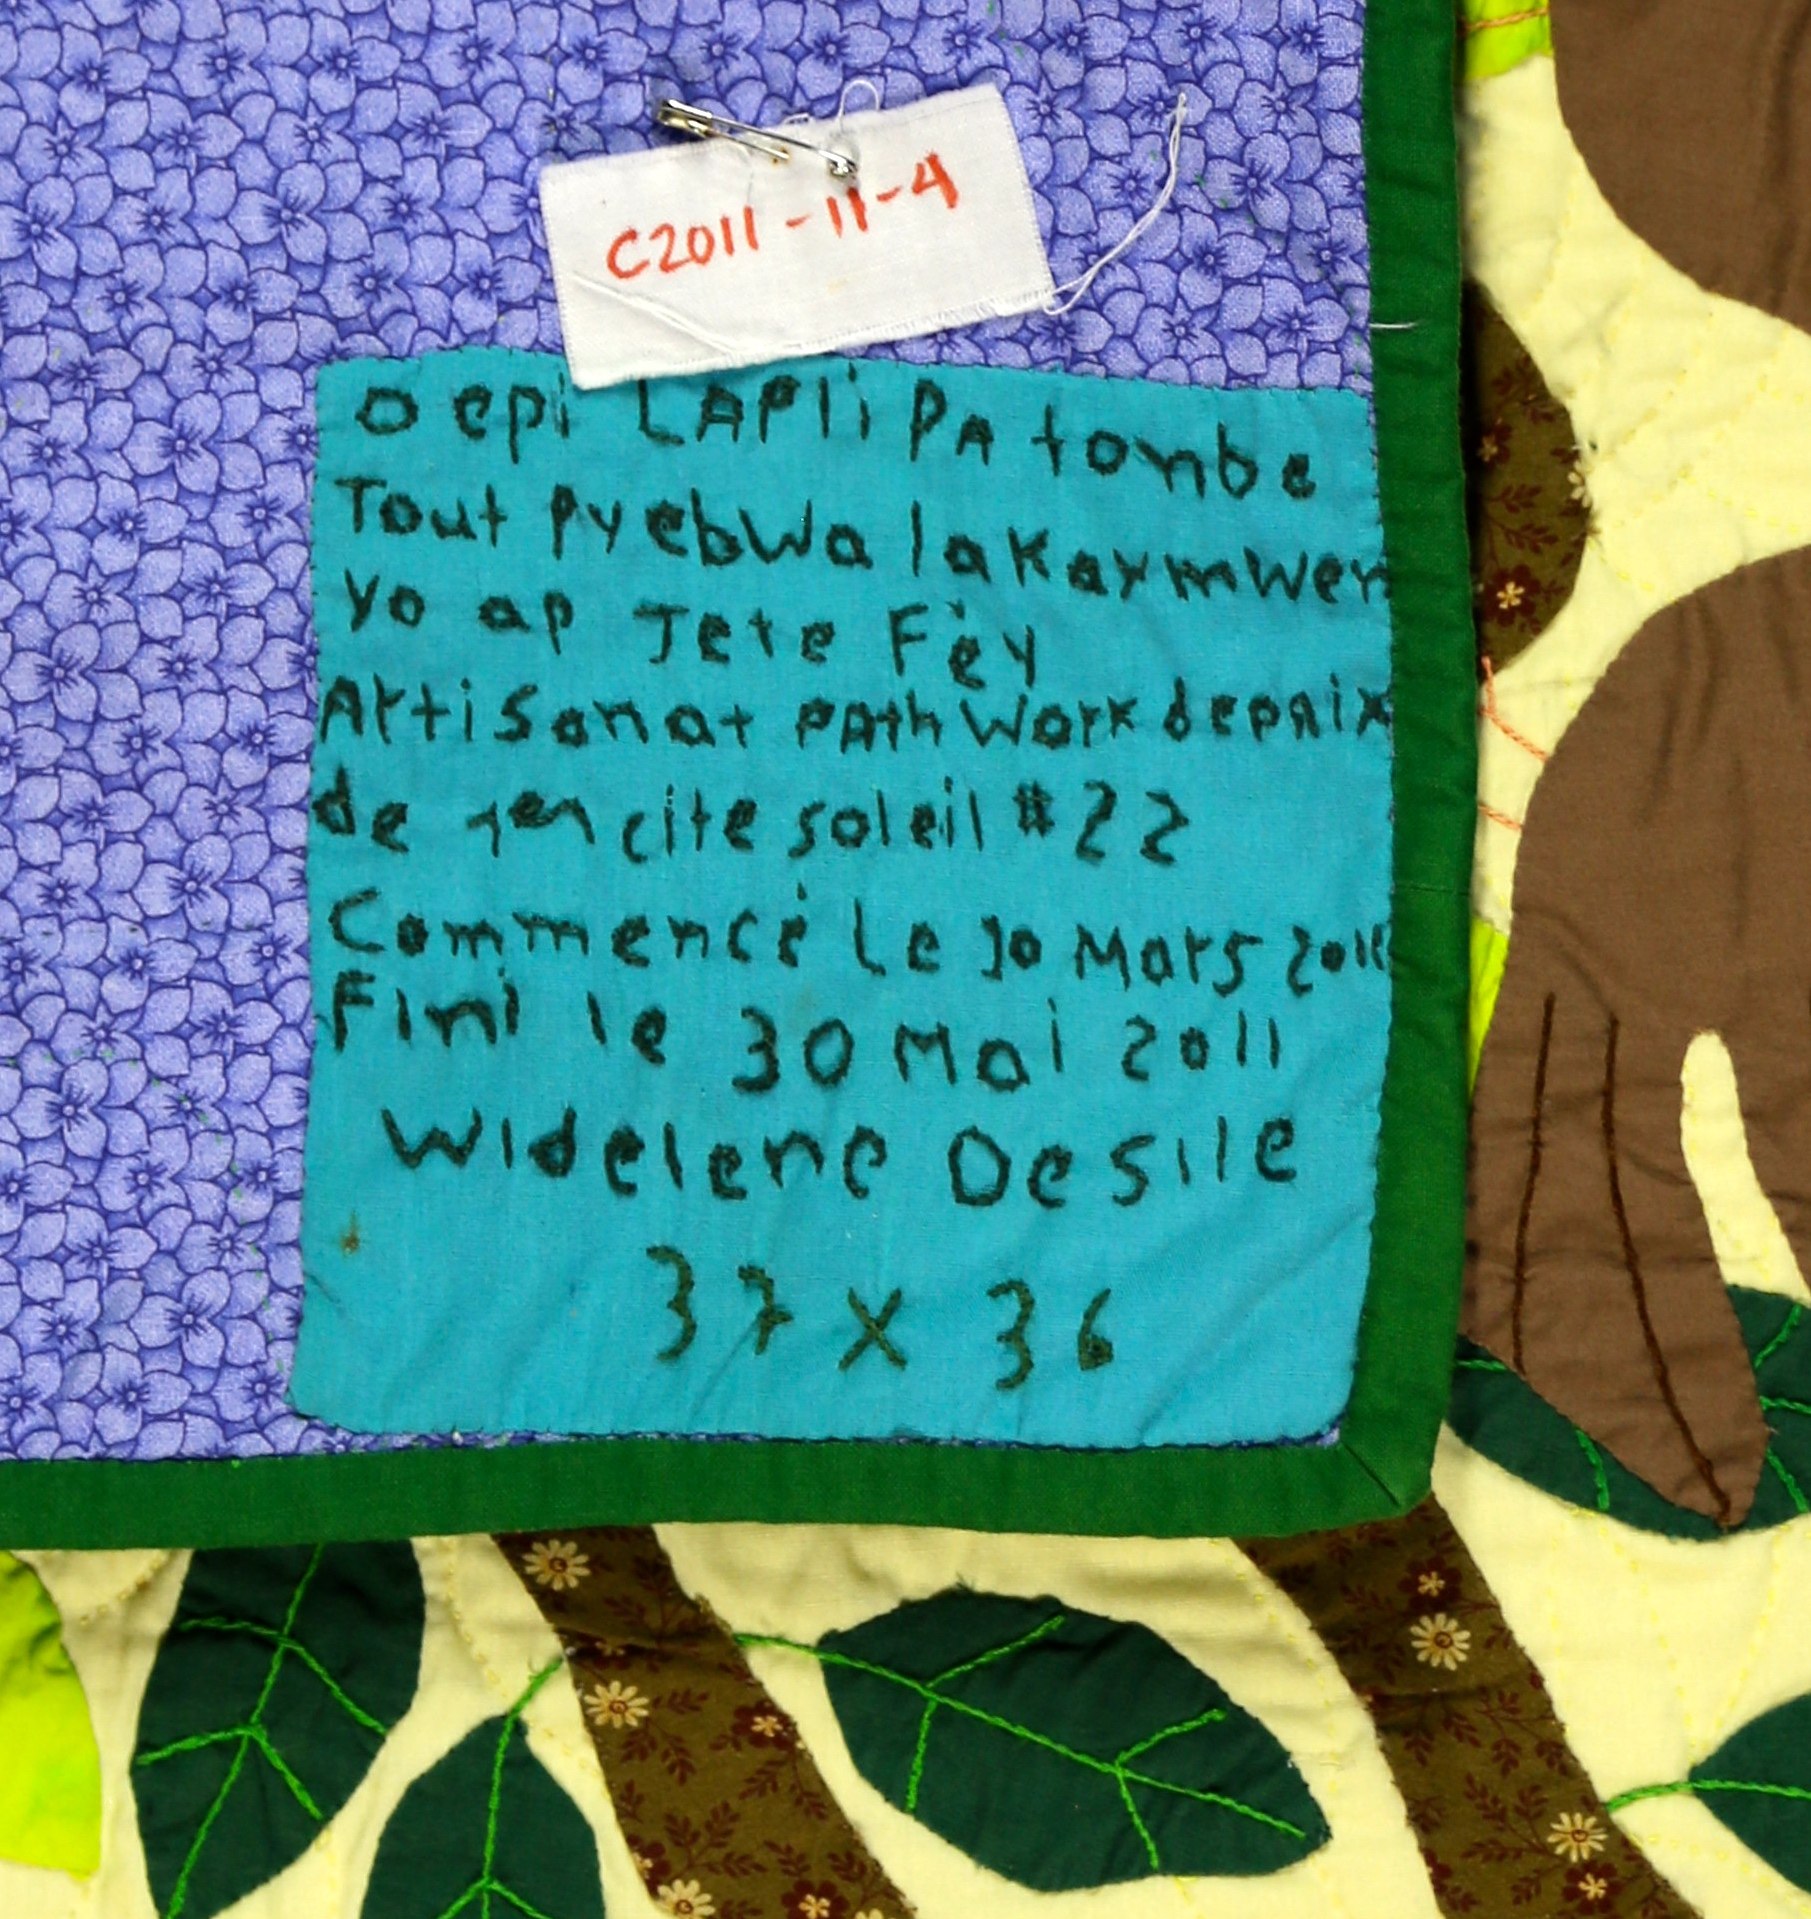 C2011-11-4
Depi LAPli PA tonbe
Tout Pyebwa lakaymwen
yo ap Jete Fèy
Artisanat PAthWork depaix
de cite soleil #22
Commencé Le 30 Mars 2011
Fini le 30 Mai 2011
Widelene Desile
37 X 36